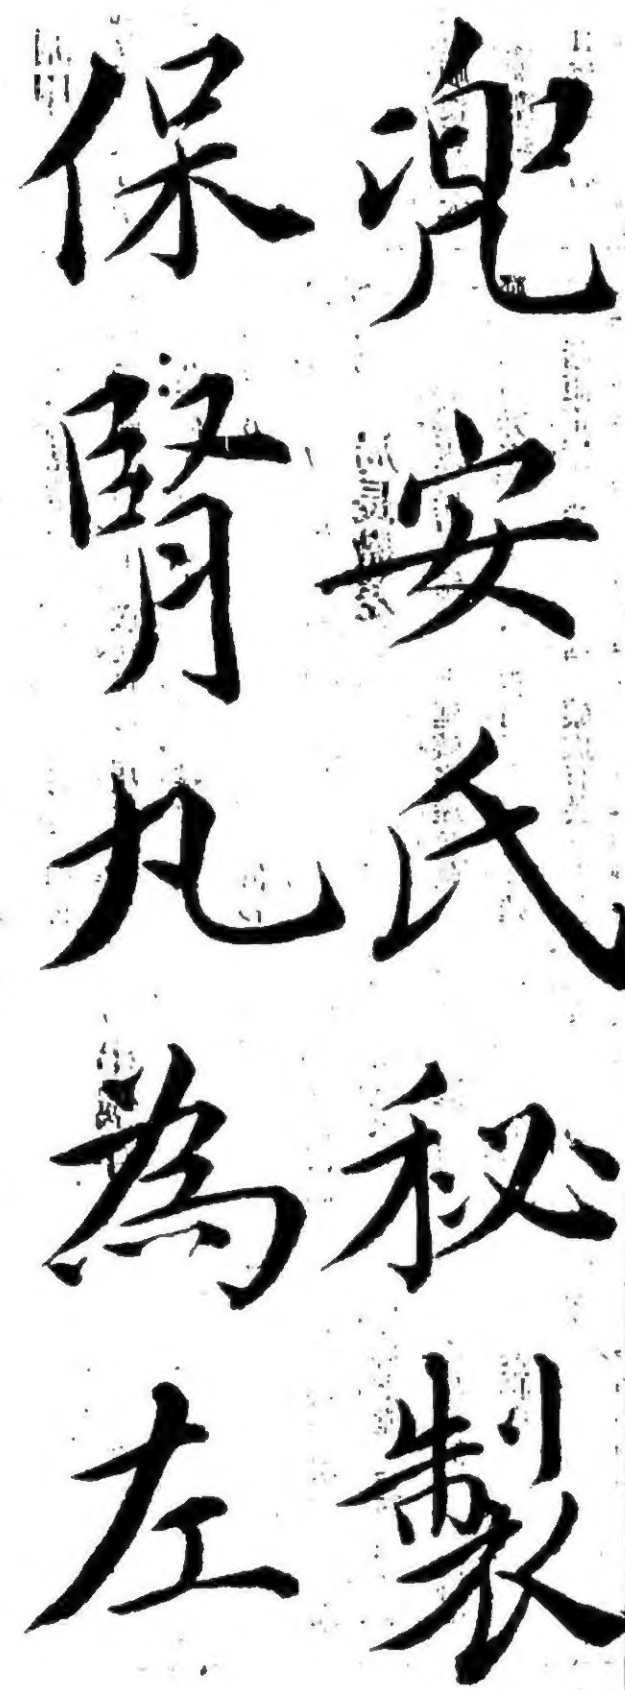 兜安氏秘製
保腎丸為左